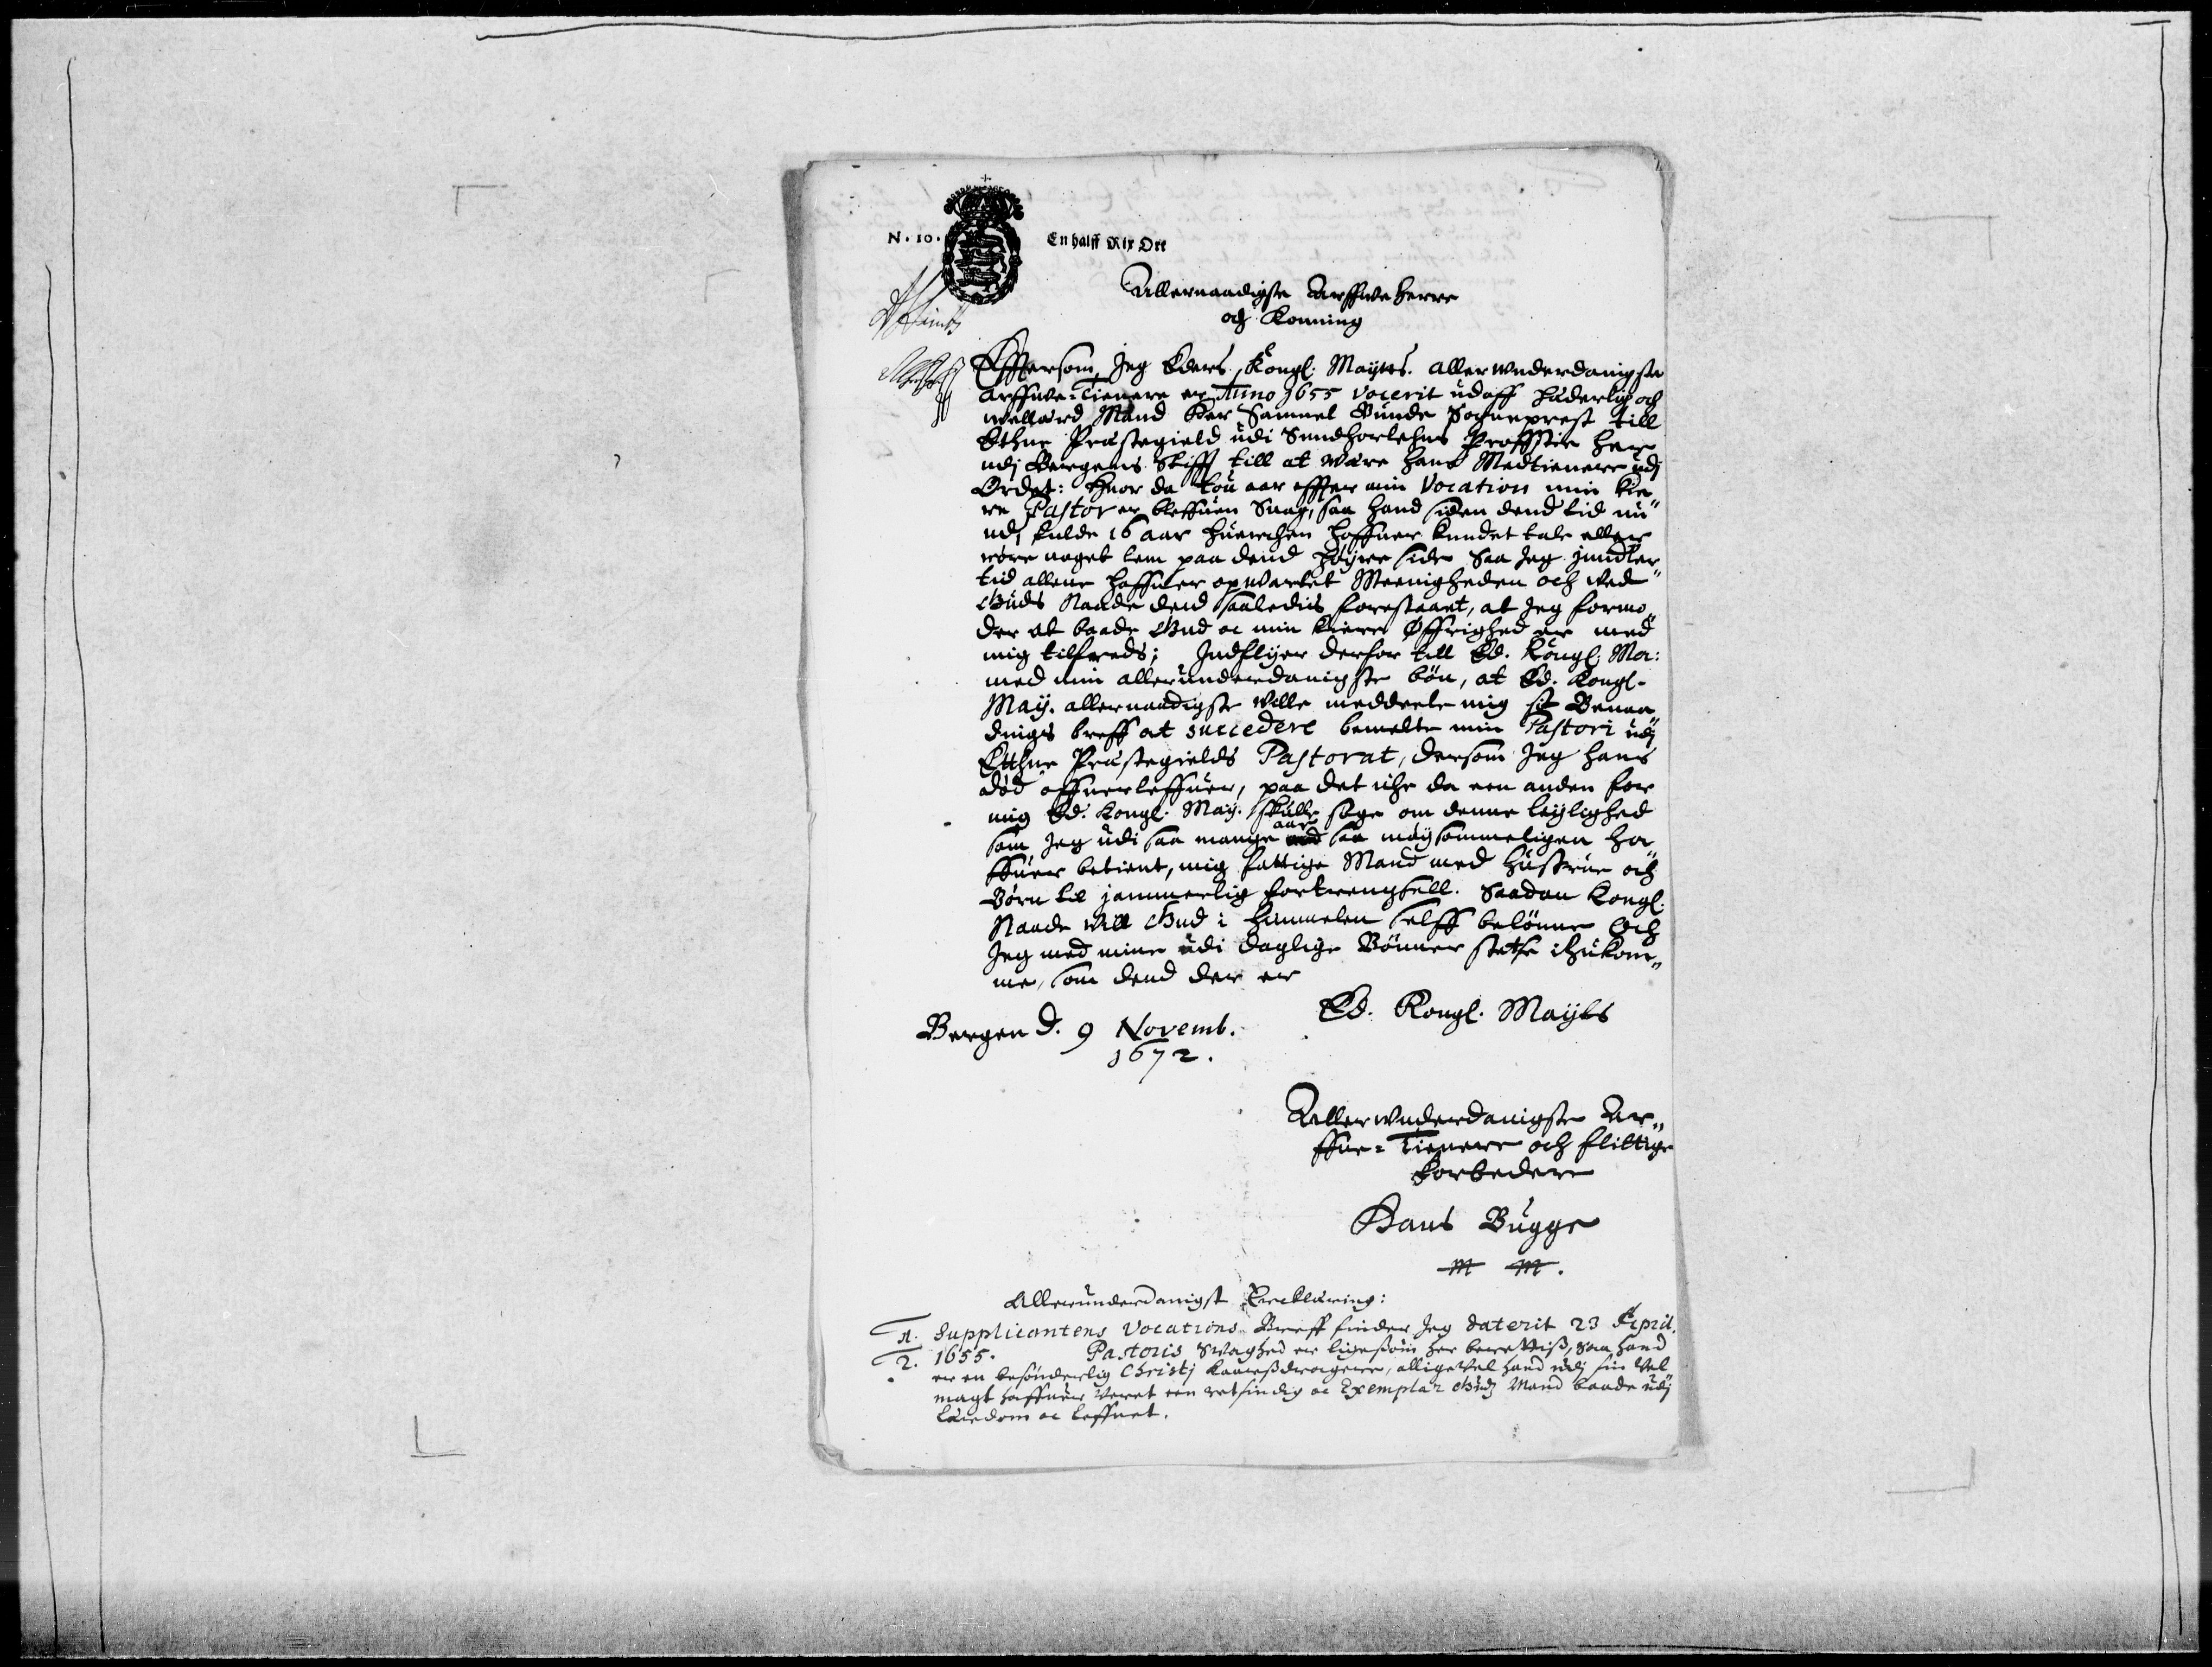 N. 10.
En halff Rix Ort
Allernaadigste Arffwe Herre
och Konning
Effttersom Jeg Eders Kongl: Maytts. allerwnderdanigste
Arffwe-Tienere er Anno 1655 vocerit udaff hæderlig och
wellærd Mand Her Samuel Bunde Sogneprest till
Ethne Præstegield udi Sundhorlehns Proffstie her
udj Bergens Stifft till at være hans Medtienere udj
Ordet: Hvor da tou aar effter min Vocation min kie„
re Pastor er bleffuen Suag, saa hand siden dend tid nu
udj fulde 16 aar huerchen haffuer kundet tale eller
røre noget lem paa dend høyre side Saa Jeg jmidler„
tid allene haffuer opvartet Meenigheden och ved
Guds Naade dend saaledis forestaaet, at Jeg formo„
der at baade Gud oc min kiere Øffrighed er med
mig tilfreds; Indflyer derfor till Ed. Kongl. Ma:
med min allerunderdanigste bøn, at Ed. Kongl.
May. allernaadigste wille meddeele mig sit Benaa„
dings breff at succedere bemelte min Pastori udj
Etthne Præstegields Pastorat, dersom Jeg hans
død offuerleffuer, paa det iche da een anden for
mig Ed. Kongl. May. skulle søge om denne leylighed
som Jeg udi saa mange aar saa møysommeligen ha„
ffuer betient, mig fattige Mand med hustrue och
Børn til jammerlig fortrengsell. Saadan Kongl.
Naade will Gud i himmelen selff belønne Och
Jeg med mine udi daglige Bønner stetse ihukom„
me, som dend der er
Ed. Kongl. Maytts
Bergen d. 9 Novemb.
1672.
Allerwnderdanigste Ar„
ffue-Tienere och flittige
Forbedere
Hans Bugge
M M.
Allerunderdanigst Ercklæring:
1. Supplicantens Vocations Breff finder Jeg daterit 23 April.
2. 1655. Pastoris Svaghed er ligesom her berettiss, saa hand
er en besønderlig Christj Kaarssdragere, alligevel hand udj sin Vel
magt haffuer veret een retsindig oc Exemplar Guds Mand baade udj
lærdom oc leffnet.